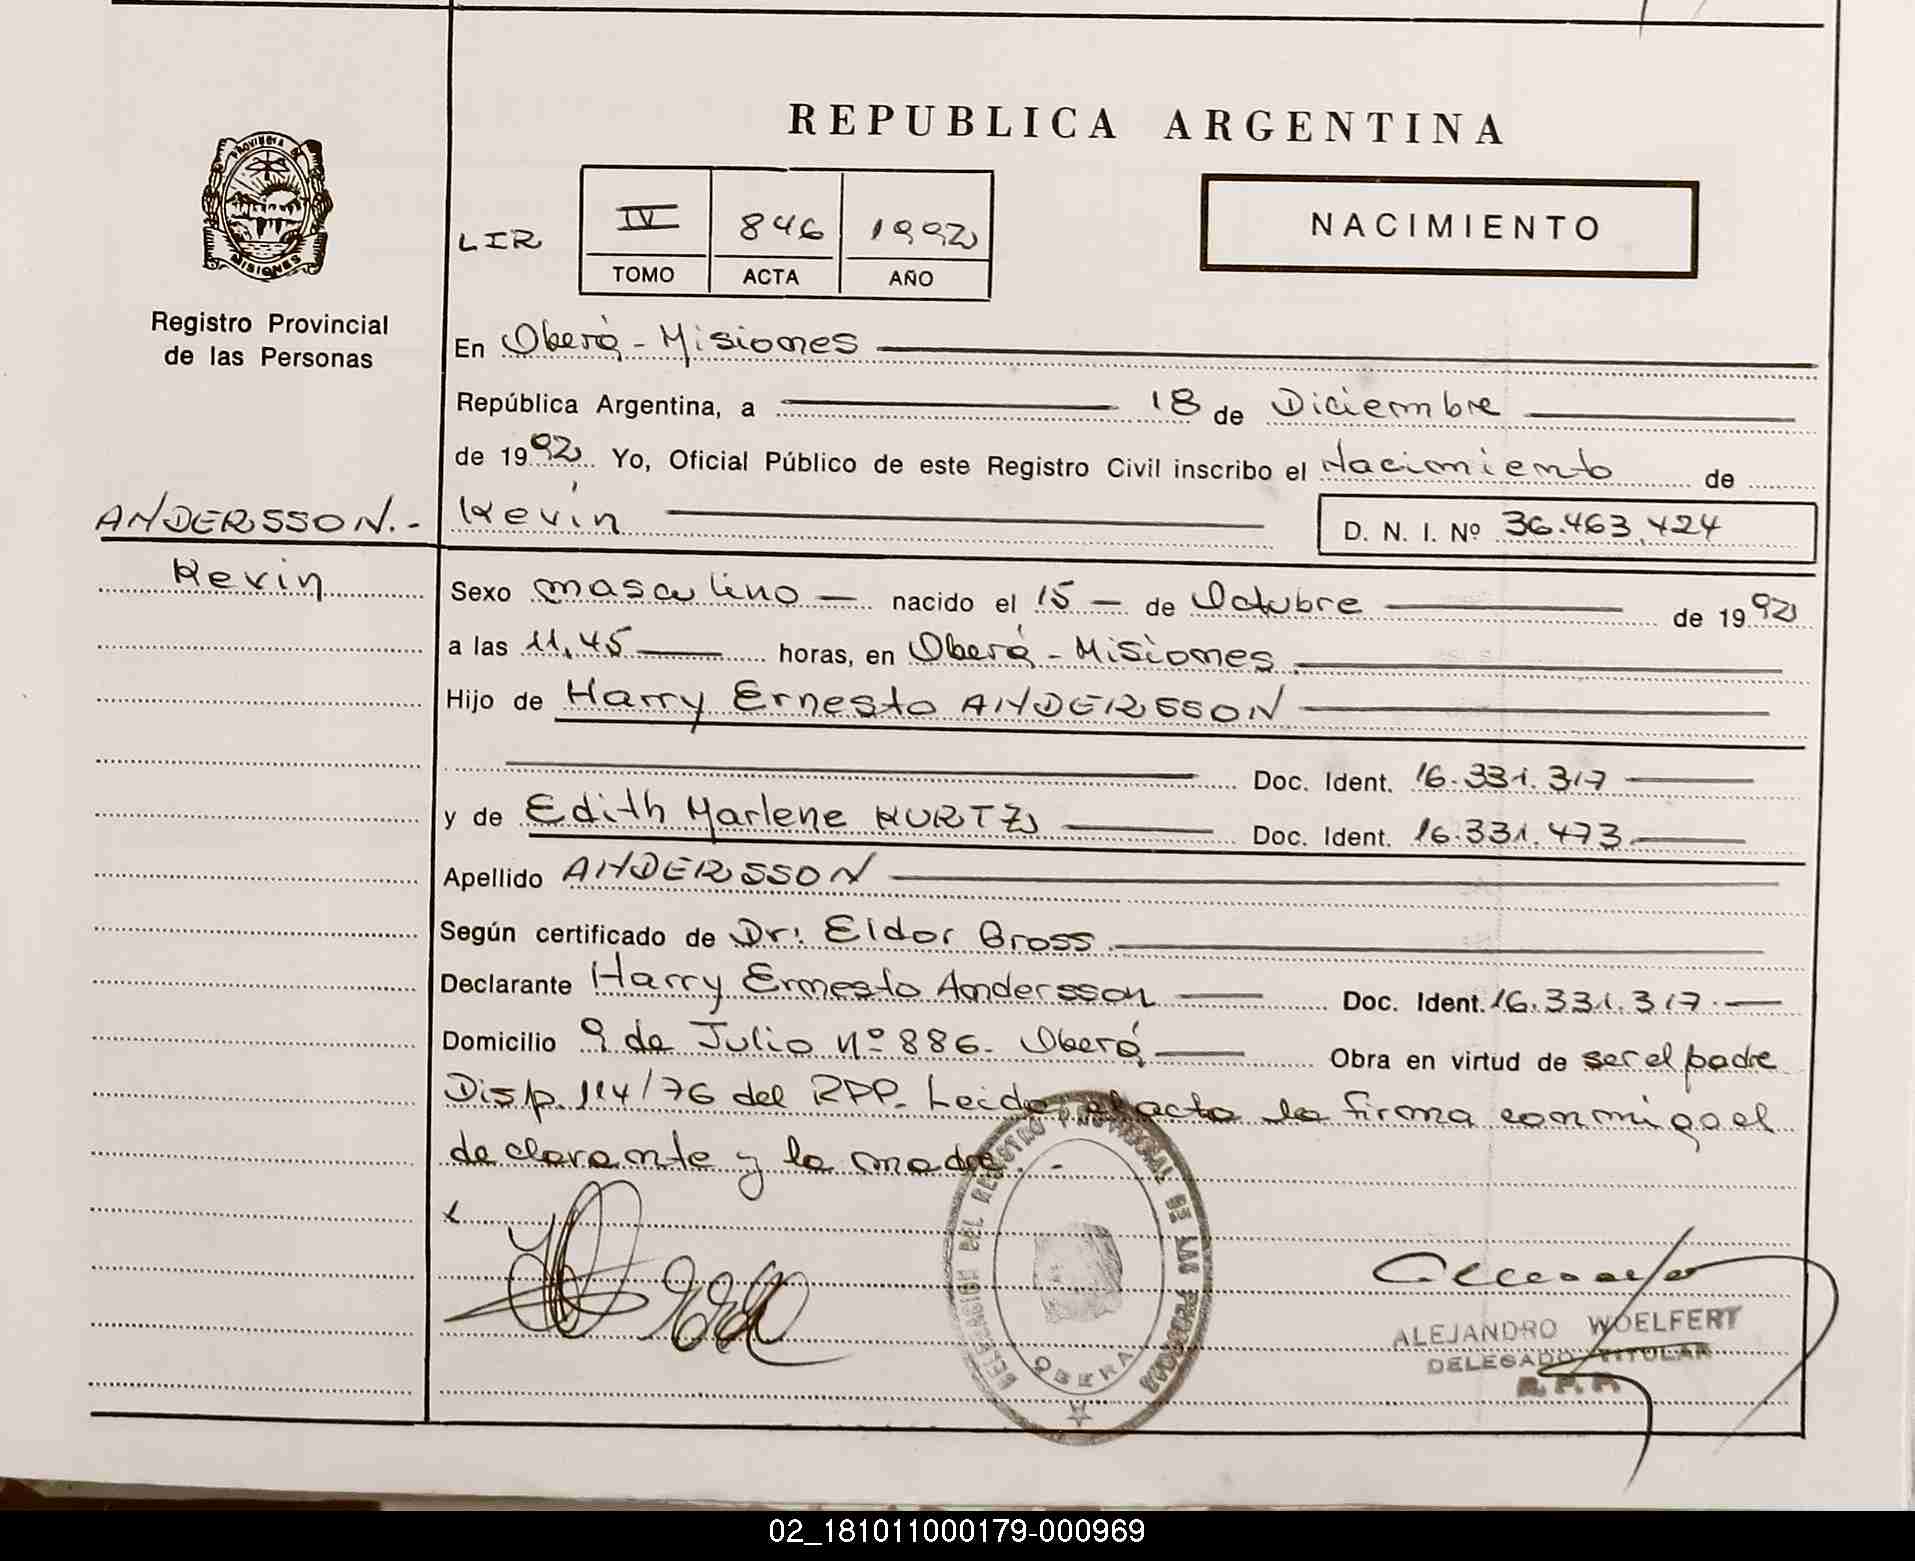 REPUBLICA ARGENTINA
PROVINCIA DE
MISIONES
Registro Provincial
de las Personas
LIR
IV 846 1992
TOMO ACTA AÑO
NACIMIENTO
En Oberá - Misiones
República Argentina, a 18 de Diciembre
de 1992. Yo, Oficial Público de este Registro Civil inscribo el Nacimiento de
ANDERSSON.-
Kevin
Kevin
D. N. I. Nº 36.463.424
Sexo masculino nacido el 15 de Octubre de 1992
a las 11,45 horas, en Oberá - Misiones
Hijo de Harry Ernesto ANDERSSON
Doc. Ident. 16.331.317
y de Edith Marlene KURTZ Doc. Ident. 16.331.473
Apellido ANDERSSON
Según certificado de Dr: Eldor Gross
Declarante Harry Ernesto Andersson Doc. Ident. 16.331.317.
Domicilio 9 de Julio nº 886. Oberá Obra en virtud de ser el padre
Disp. 114/76 del RPP. Leida el acta la firma conmigo el
declarante y la madre.-
DELEGACION DEL REGISTRO PROVINCIAL DE LAS PERSONAS
OBERA
ALEJANDRO WOELFERT
DELEGADO TITULAR
R. P. P.
02_181011000179-000969